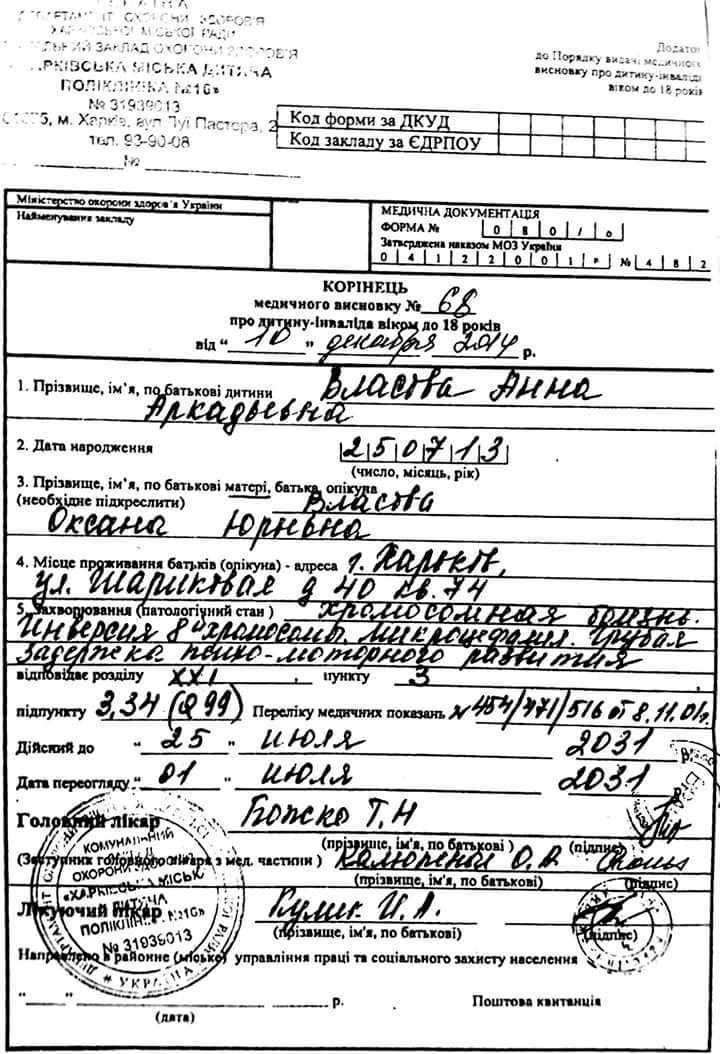 УКРАЇНА
ДЕПАРТАМЕНТ ОХОРОНИ ЗДОРОВ'Я
ХАРКІВСЬКОЇ МІСЬКОЇ РАДИ
ЗАКЛАД ОХОРОНИ ЗДОРОВ'Я
ХАРКІВСЬКА МІСЬКА ДИТЯЧА
ПОЛІКЛІНІКА №16»
№ 31939013
м. Харків, вул. Луї Пастера, 2
тел. 93-90-08
№
Додаток
до Порядку видачі медичного
висновку про дитину-інваліда
віком до 18 років
Код форми за ДКУД
Код закладу за ЄДРПОУ
Міністерство охорони здоров'я України
Найменування закладу
МЕДИЧНА ДОКУМЕНТАЦІЯ
ФОРМА № 0 8 0 / о
Затверджена наказом МОЗ України
0 4 1 2 2 0 0 1 р № 4 8 2
КОРІНЕЦЬ
медичного висновку № 68
про дитину-інваліда віком до 18 років
від " 10 " декабря 2014 р.
1. Прізвище, ім'я, по батькові дитини Власова Анна
Аркадьевна
2. Дата народження 2 5 0 7 1 3
(число, місяць, рік)
3. Прізвище, ім'я, по батькові матері, батька, опікуна
(необхідне підкреслити) Власова
Оксана Юрьевна
4. Місце проживання батьків (опікуна) - адреса г. Харьков,
ул. Шариковая д 40 кв. 74
5. Захворювання (патологічний стан ) хромосомная болезнь.
Инверсия 8й хромосомы. микроцефалия. Грубая
Задержка психо-моторного развития
відповідає розділу XXI , пункту 3 ,
підпункту 3,34 (Q 99) Переліку медичних показань № 454/471/516 от 8.11.01г.
Дійсний до " 25 " июля 2031 р.
Дата переогляду " 01 " июля 2031 р.
Головний лікар Божко Т.Н
(прізвище, ім'я, по батькові ) (підпис)
(Заступник головного лікаря з мед. частини ) О. В.
(прізвище, ім'я, по батькові) (підпис)
Лікуючий лікар Кулик И. А.
(прізвище, ім'я, по батькові) (підпис)
Направлено в районне (міське) управління праці та соціального захисту населення
" " р. Поштова квитанція
(дата)
КОМУНАЛЬНИЙ
ЗАКЛАД
ОХОРОНИ ЗДОРОВ'Я
«ХАРКІВСЬКА МІСЬКА
ДИТЯЧА
ПОЛІКЛІНІКА №16»
№ 31939013
УКРАЇНА